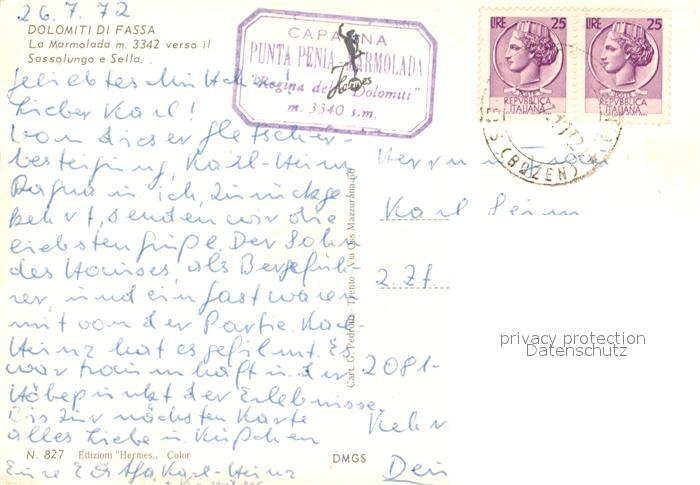 26.7.72
DOLOMITI DI FASSA
La Marmolada m. 3342 verso il
Sassolungo e Sella.
CAPANNA
PUNTA PENIA-MARMOLADA
"Regina delle Dolomiti"
m. 3340 s.m.
Hermes
LIRE 25
LIRE 25
POSTE
REPVBBLICA
ITALIANA
POSTE
REPVBBLICA
ITALIANA
(BOZEN)
Geliebtes
Lieber Karl!
Von dieser Gletscher-
besteigung, Karl-Heinz
in, ich, zurückge
kehrt, senden wir die
liebsten Grüße. Der Sohn
des Hauses, als Bergfüh-
rer, und ein Gast waren
mit von der Partie. Karl-
Heinz hat es gefilmt. Es
war traumhaft in der
Höhepunkt der Erlebnisse.
Bis zur nächsten Karte
alles Liebe u Küßchen
Eure Karl-Heinz
Herrn u. Frau
Karl
2. Zt
2081-
Kehr
Dei
Cart. G. Pedrotti - Trento - Via Oss Mazzurana 60
N. 827 Edizioni "Hermes,, - Color
DMGS
privacy protection
Datenschutz